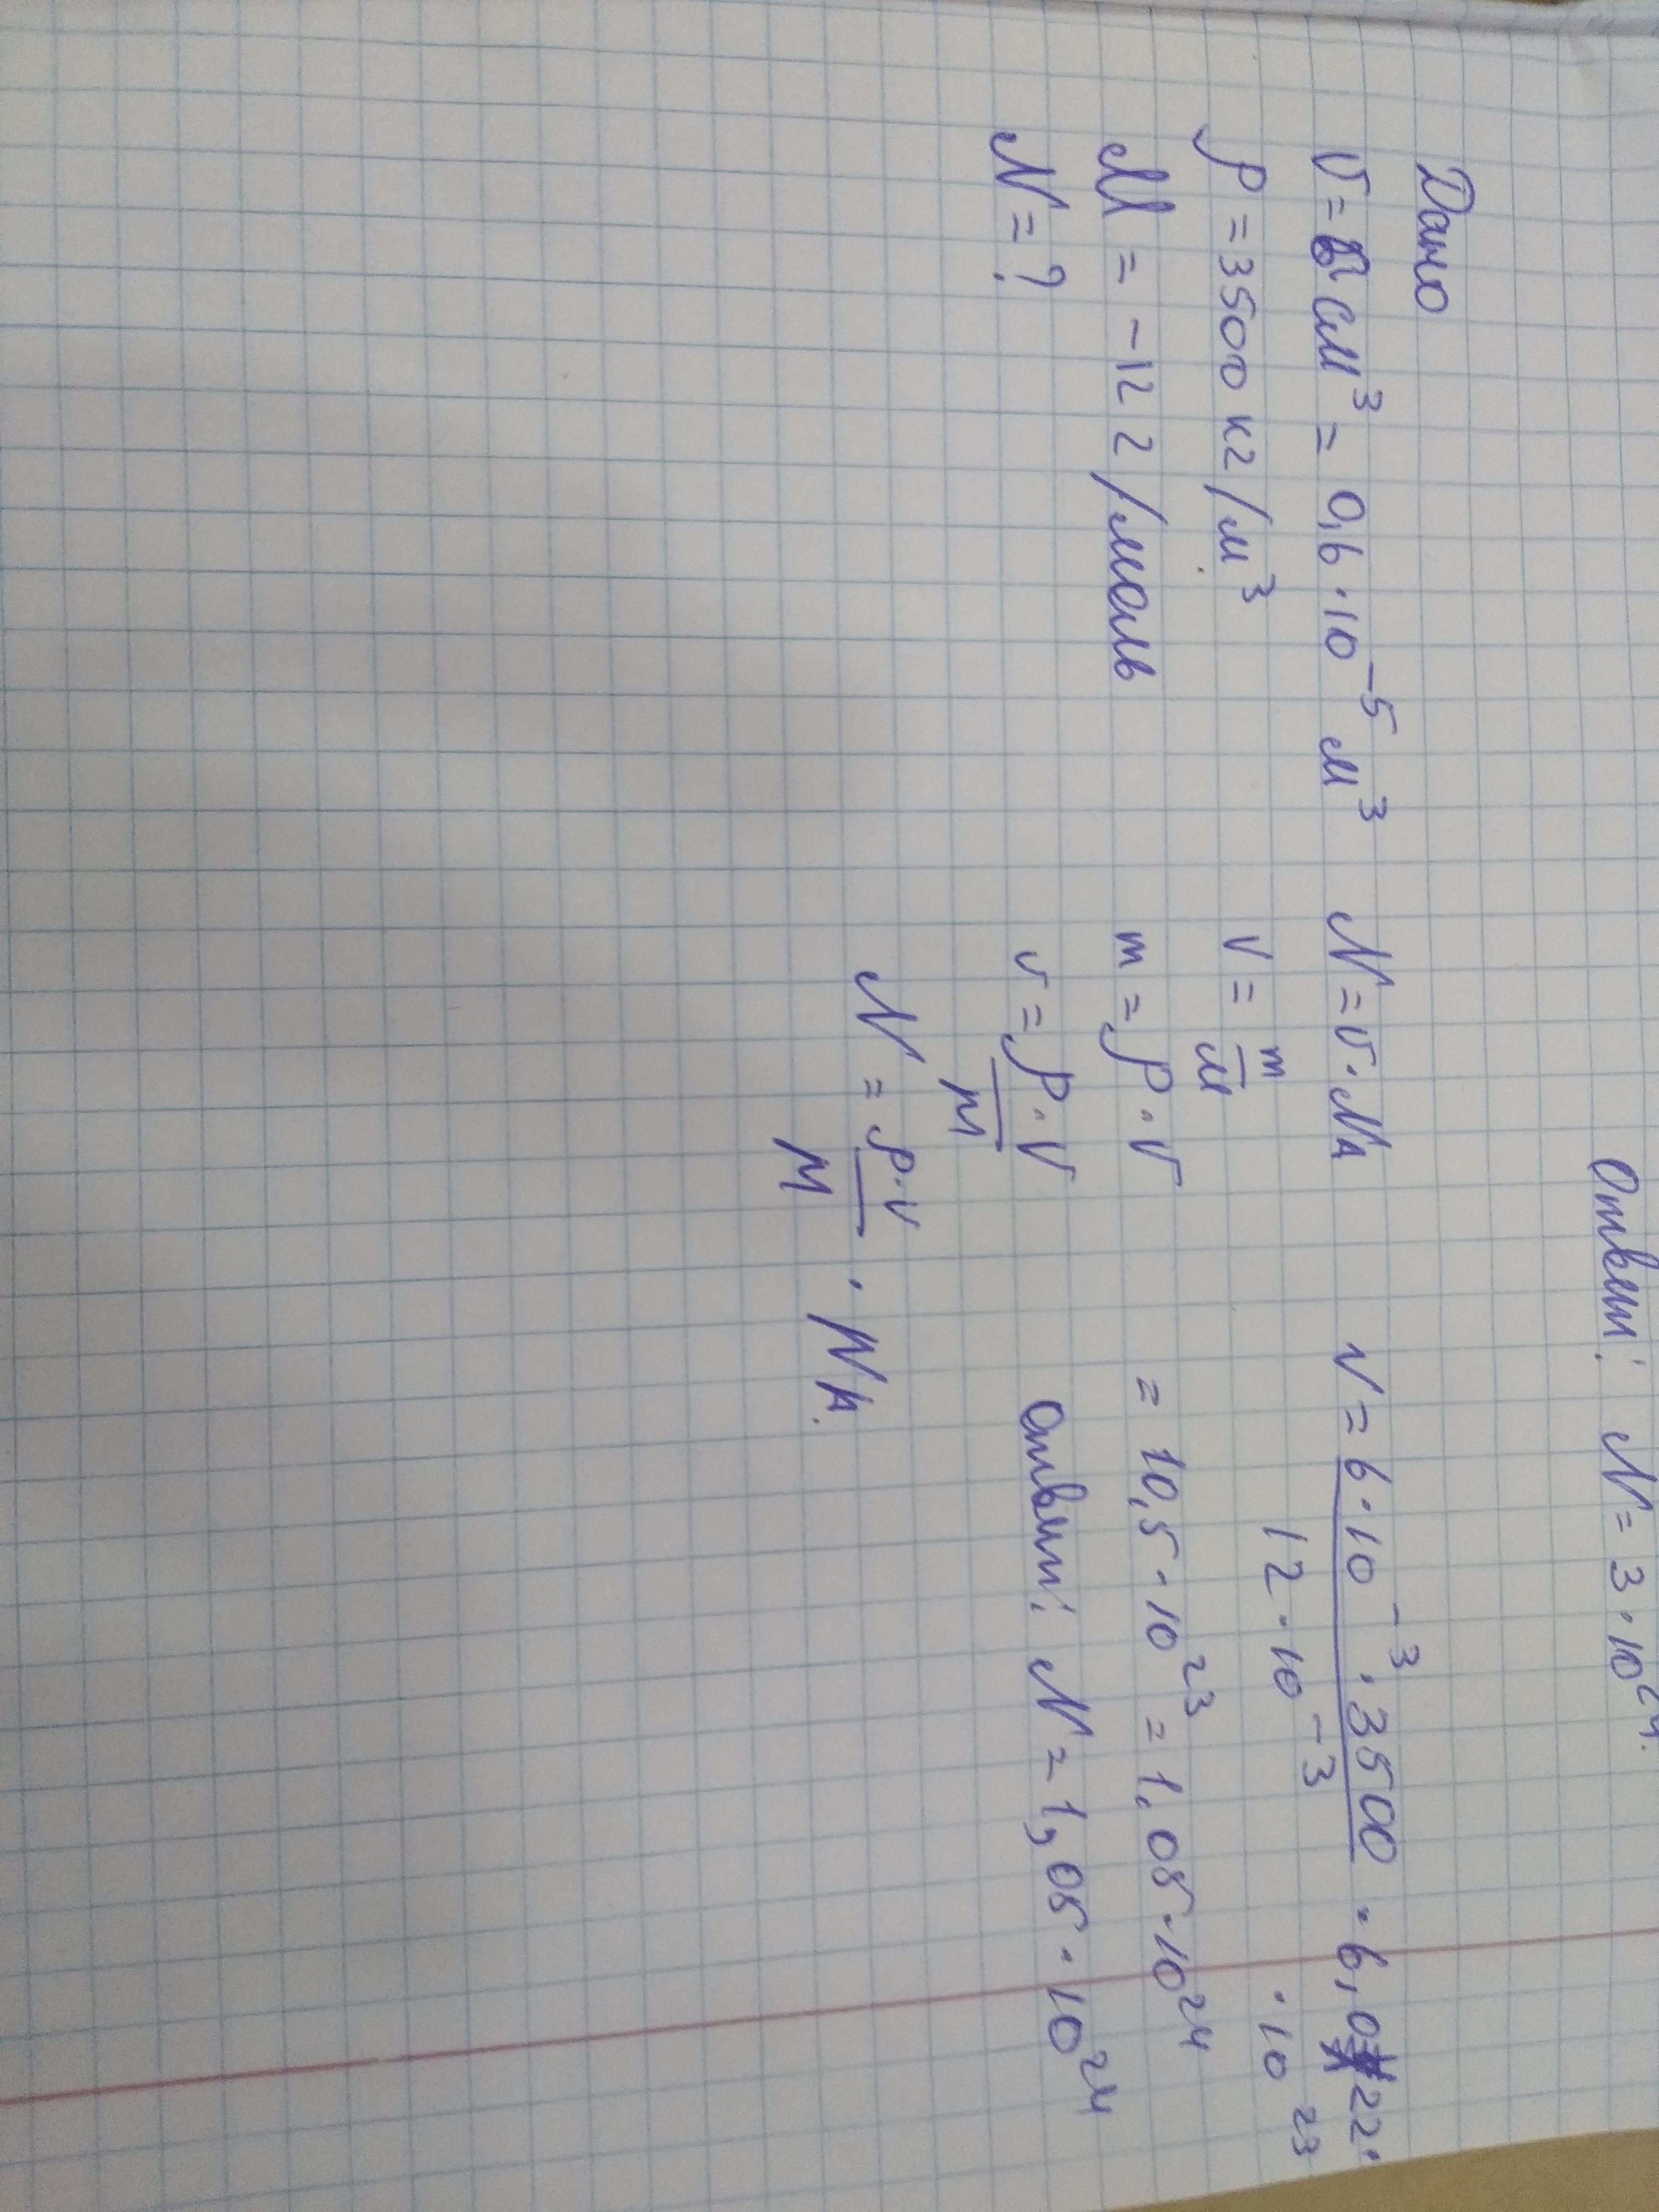 Ответ: N = 3·10²⁴.
Дано
V = 6 см³ = 0,6·10⁻⁵ м³
ρ = 3500 кг/м³
M = -12 г/моль
N = ?
N = ν·Nₐ
ν = m/M
m = ρ·V
ν = ρ·V/M
N = ρ·V/M · Nₐ.
N = 6·10⁻³·3500/12·10⁻³ · 6,022·
·10²³
= 10,5·10²³ = 1,05·10²⁴
Ответ: N = 1,05·10²⁴